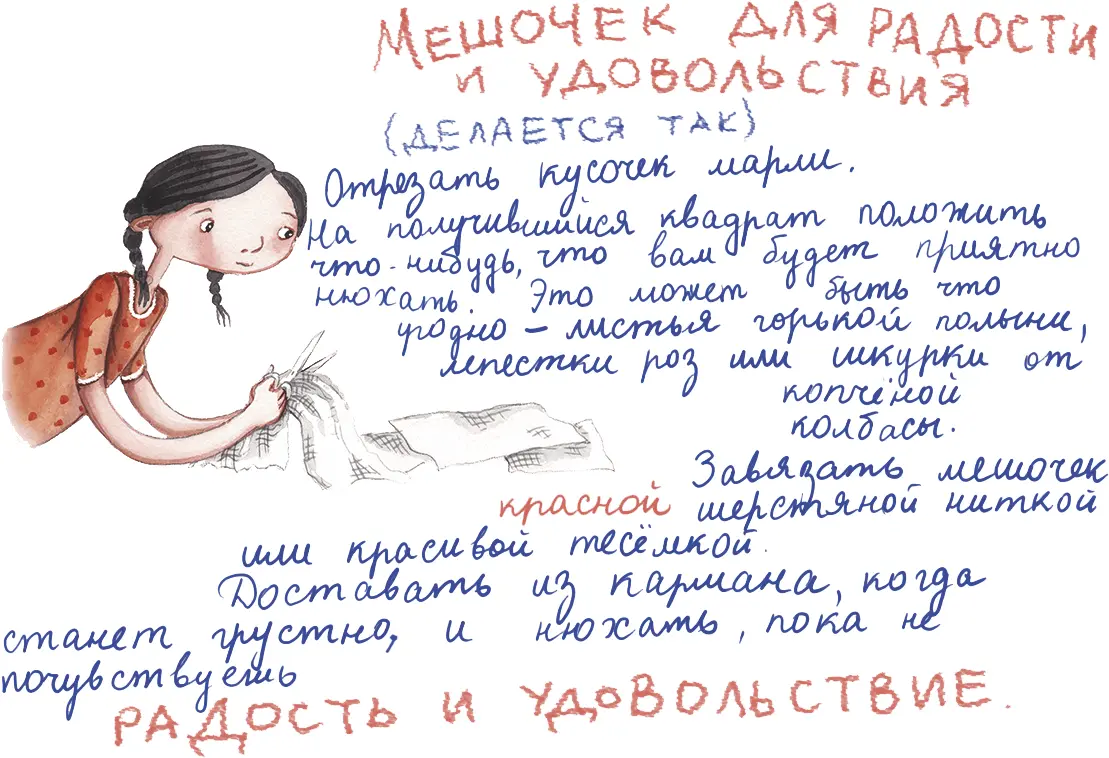 МЕШОЧЕК ДЛЯ РАДОСТИ
И УДОВОЛЬСТВИЯ
(ДЕЛАЕТСЯ ТАК)
Отрезать кусочек марли.
На получившийся квадрат положить
что-нибудь, что вам будет приятно
нюхать. Это может быть что
угодно – листья горькой полыни,
лепестки роз или шкурки от
копчёной
колбасы.
Завязать мешочек
красной шерстяной ниткой
или красивой тесёмкой.
Доставать из кармана, когда
станет грустно, и нюхать, пока не
почувствуешь
РАДОСТЬ И УДОВОЛЬСТВИЕ.